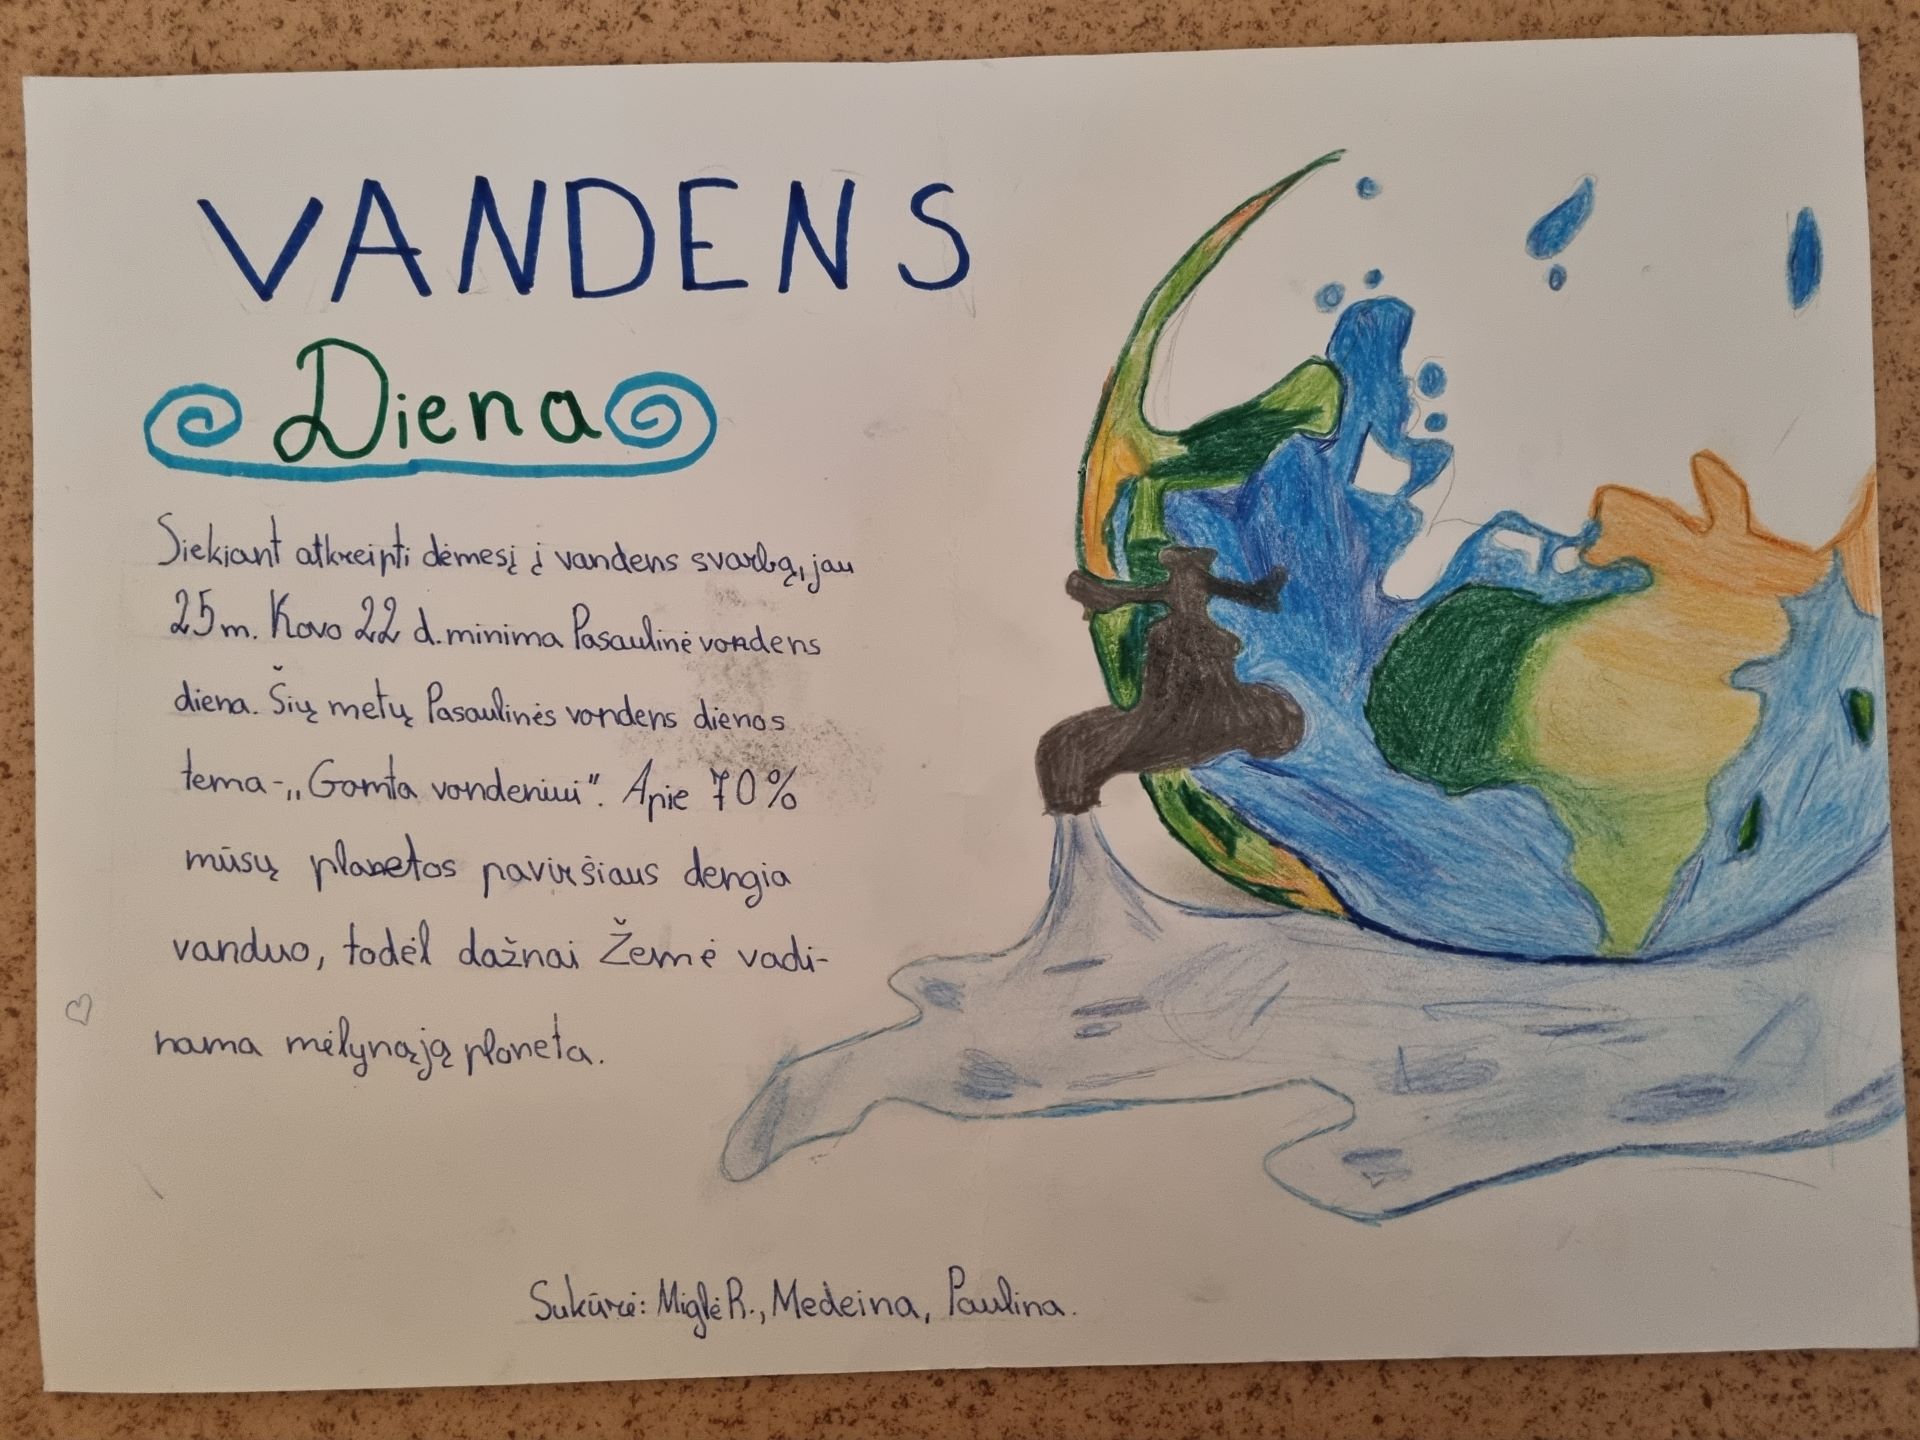 VANDENS
Diena
Siekiant atkreipti dėmesį į vandens svarbą, jau
25 m. Kovo 22 d. minima Pasaulinė vandens
diena. Šių metų Pasaulinės vandens dienos
tema-„Gamta vandeniui". Apie 70%
mūsų planetos paviršiaus dengia
vanduo, todėl dažnai Žemė vadi-
nama mėlynąją planeta.
Sukūrė: Miglė R., Medeina, Paulina.